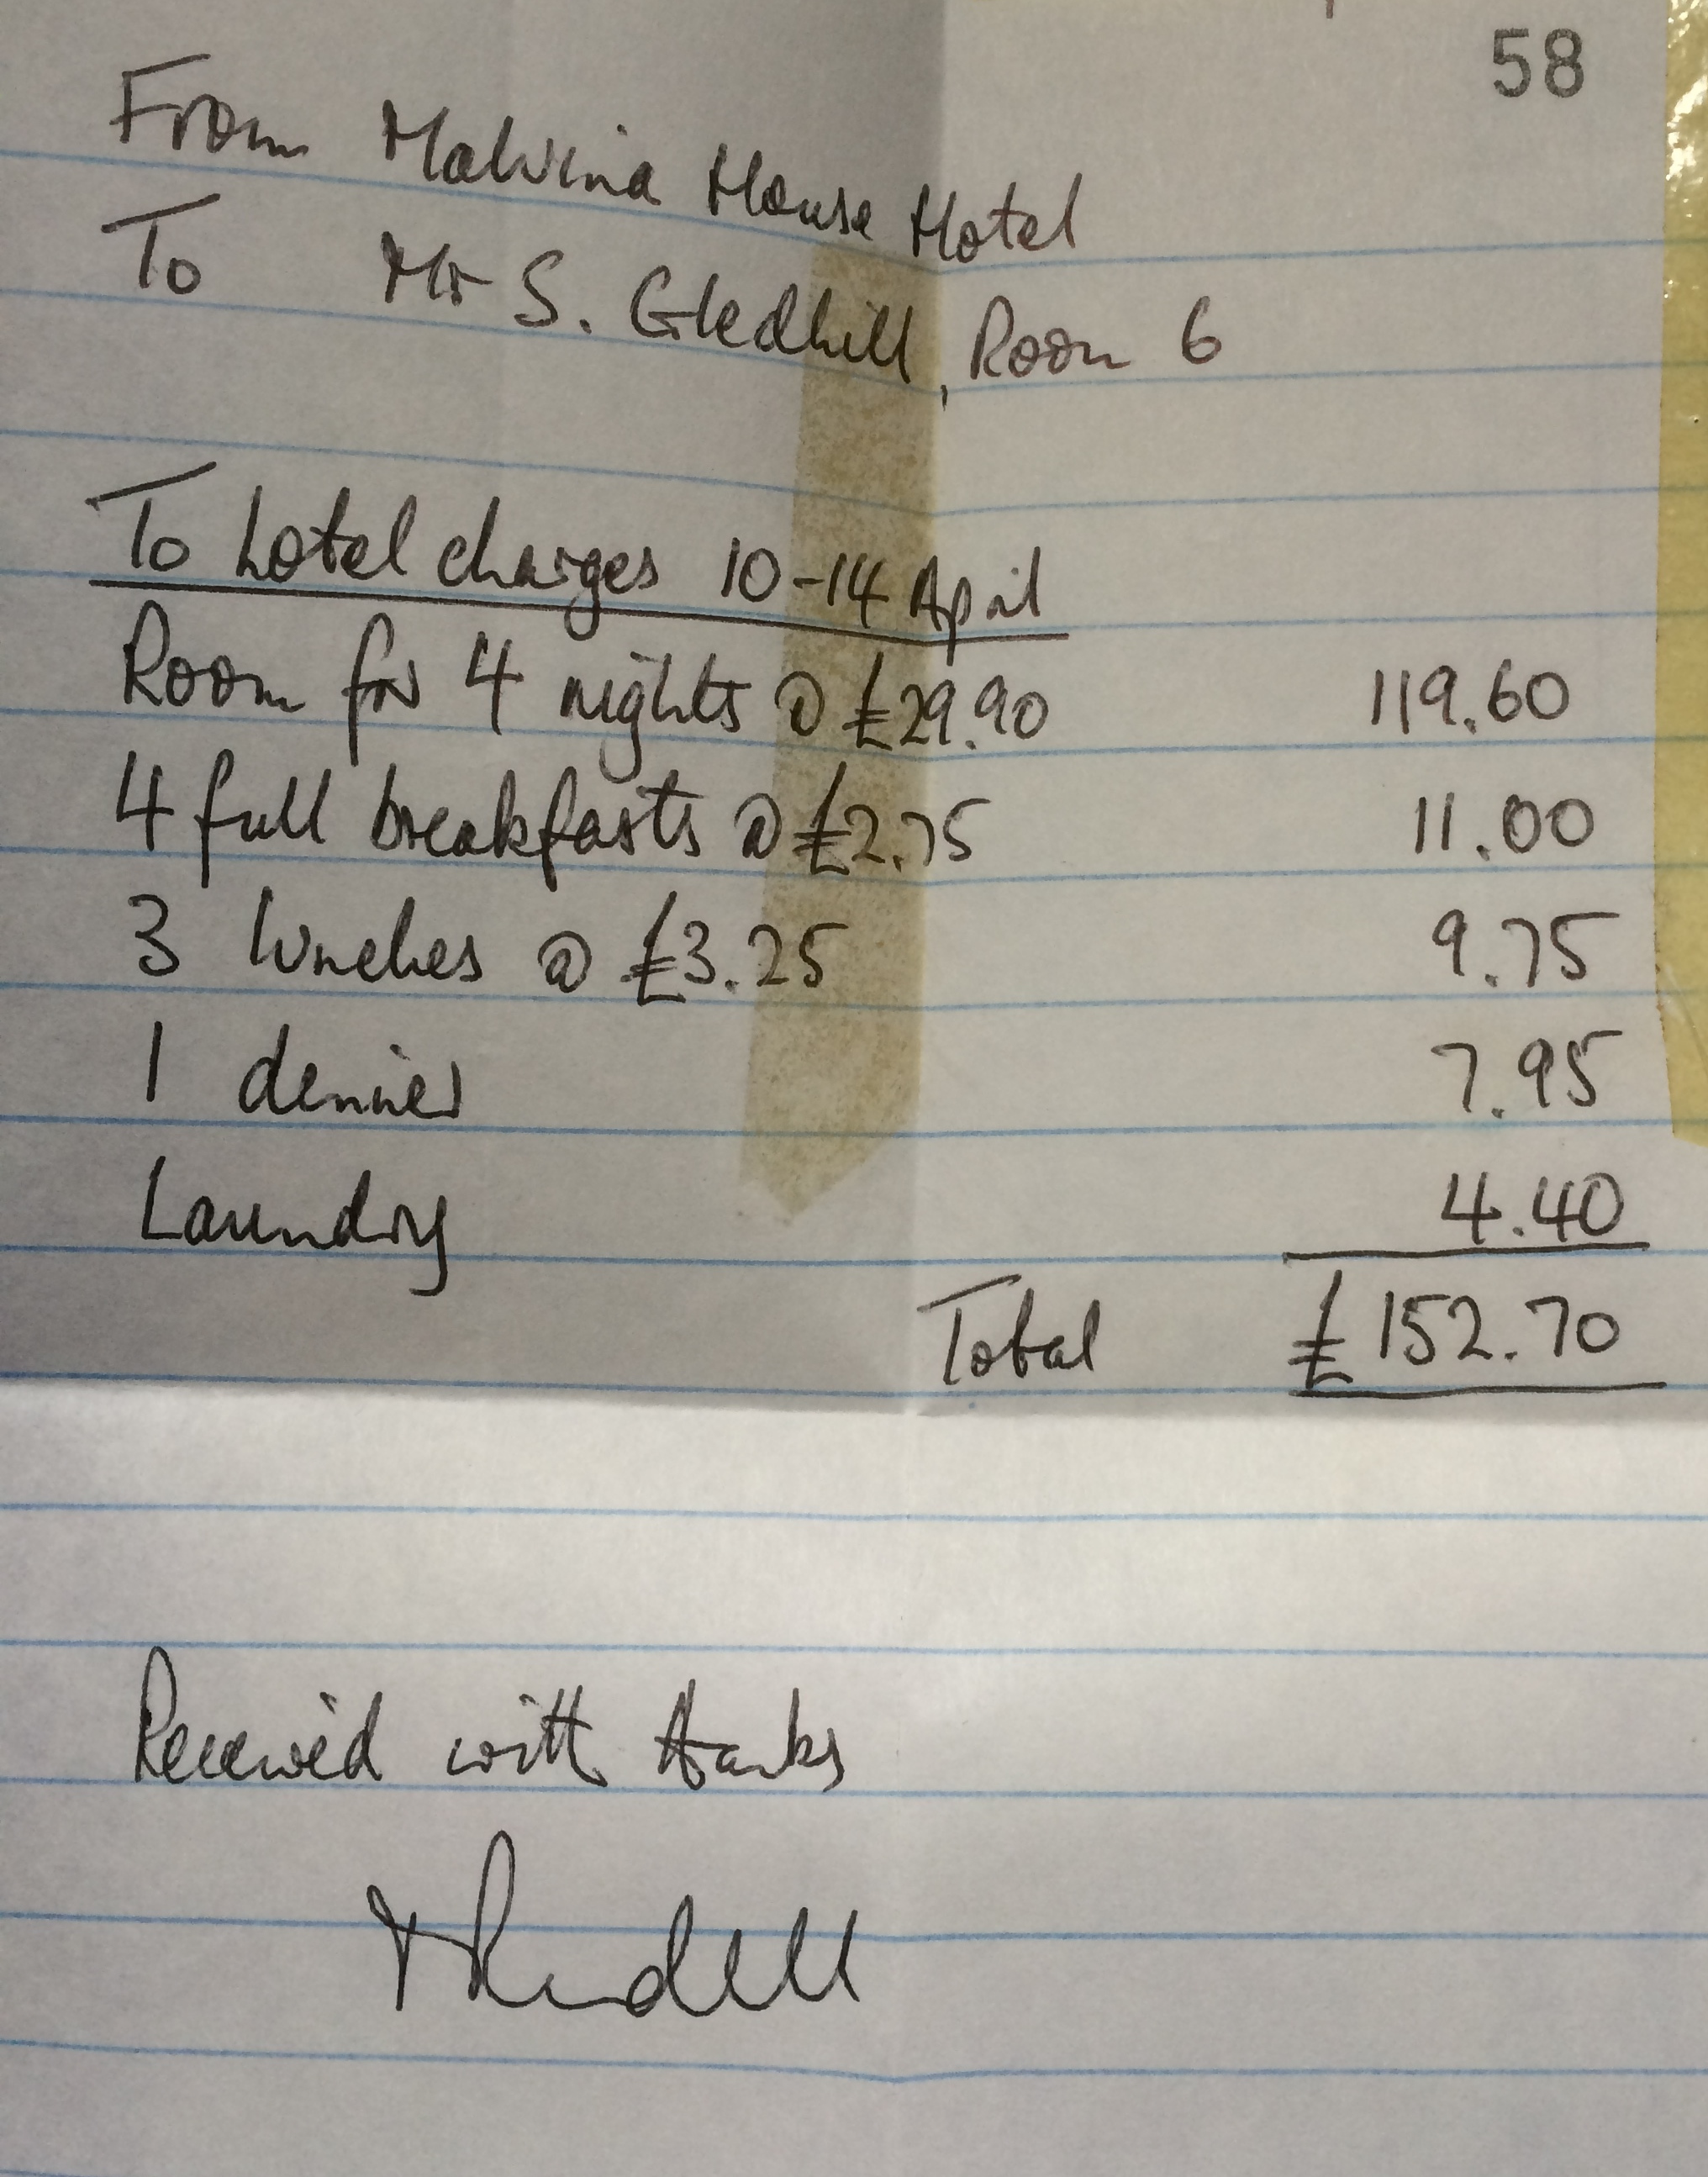 58
From Malvina House Hotel
To Mr S. Gledhill, Room 6
To hotel charges 10-14 April
Room for 4 nights @ £29.90 119.60
4 full breakfasts @ £2.75 11.00
3 lunches @ £3.25 9.75
1 dinner 7.95
Laundry 4.40
Total £152.70
Received with thanks